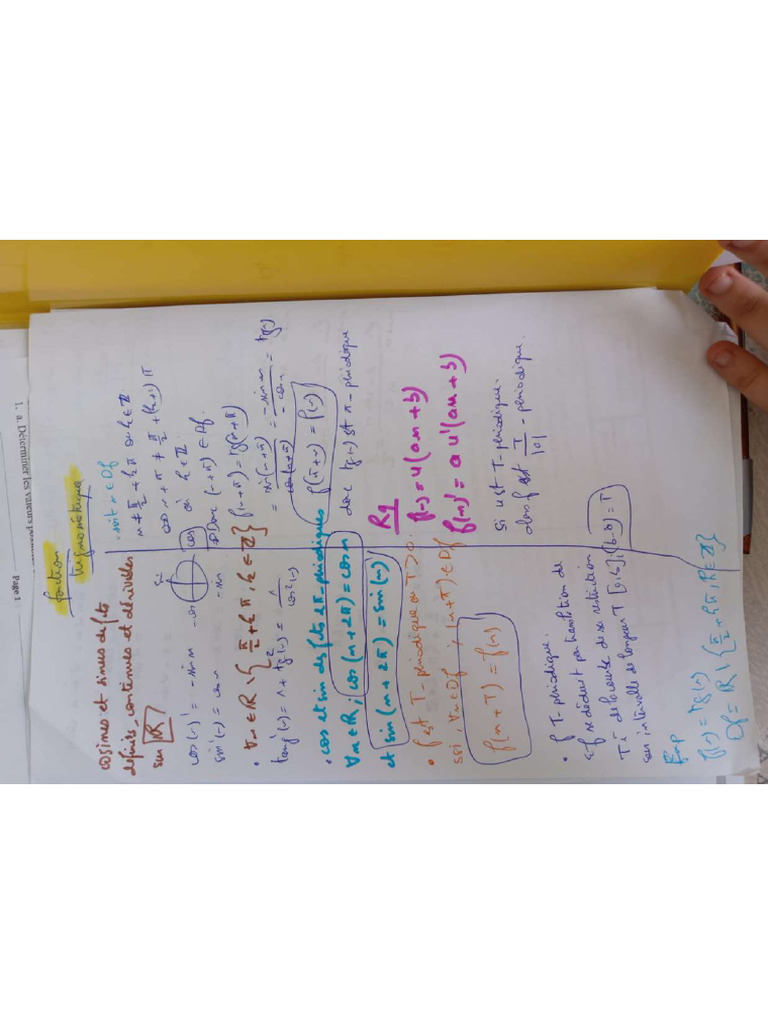 fonction
trigonométrique
cosinus et sinus des fcts
définies, continues et dérivables
sur ℝ
cos(x)' = -sin x
sin'(x) = cos x
sin
-cos
cos
-sin
• ∀x ∈ ℝ \ { π/2 + kπ, k ∈ ℤ }
tang'(x) = 1 + tg²(x) = 1/cos²(x)
• cos et sin des fcts 2π-périodiques
∀x ∈ ℝ ; cos(x + 2π) = cos x
et sin(x + 2π) = sin(x)
• f est T-périodique ou T > 0.
ssi, ∀x ∈ Df ; (x + T) ∈ Df
f(x + T) = f(x)
• f T-périodique.
Cf se déduit par translation de
T i⃗ de la courbe de sa restriction
sur intervalle de longueur T [a, b] ; (b-a) = T
Exp
f(x) = tg(x)
Df = ℝ \ { π/2 + kπ, k ∈ ℤ }
• soit x ∈ Df
x ≠ π/2 + kπ où k ∈ ℤ.
x + π ≠ π/2 + (k+1)π
où k ∈ ℤ.
Donc (x + π) ∈ Df.
f(x + π) = tg(x + π)
= sin(x + π)/cos(x + π) = -sin x/-cos x = tg(x)
f(π + x) = f(x)
donc tg(x) est π-périodique
Rq
f(x) = u(ax + b)
f(x)' = a u'(ax + b)
Si u est T-périodique.
alors f est T/|a| - périodique.
1. a. Déterminer les valeurs
Page 1